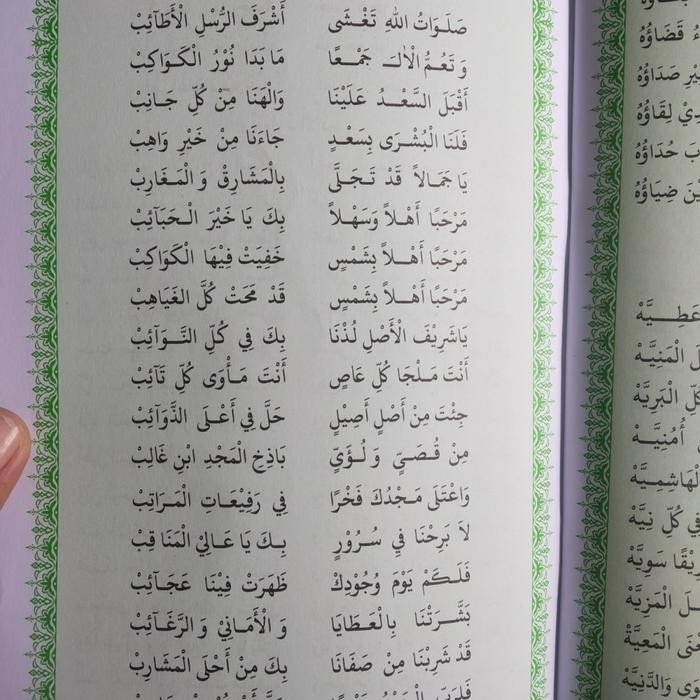 صَلَوَاتُ اللهِ تَغْشَى أَشْرَفَ الرُّسْلِ الْأَطَآئِبْ
وَتَعُمُّ الْاٰلَ جَمْعًا مَا بَدَا نُوْرُ الْكَوَاكِبْ
أَقْبَلَ السَّعْدُ عَلَيْنَا وَالْهَنَا مِنْ كُلِّ جَانِبْ
فَلَنَا الْبُشْرَى بِسَعْدٍ جَاءَنَا مِنْ خَيْرِ وَاهِبْ
يَا جَمَالاً قَدْ تَجَلَّى بِالْمَشَارِقْ وَ الْمَغَارِبْ
مَرْحَبًا أَهْلاً وَسَهْلاً بِكَ يَا خَيْرَ الْحَبَآئِبْ
مَرْحَبًا أَهْلاً بِشَمْسٍ خَفِيَتْ فِيْهَا الْكَوَاكِبْ
مَرْحَبًا أَهْلاً بِشَمْسٍ قَدْ مَحَتْ كُلَّ الْغَيَاهِبْ
يَاشَرِيْفَ الْأَصْلِ لُذْنَا بِكَ فِي كُلِّ النَّوَآئِبْ
أَنْتَ مَلْجَا كُلِّ عَاصٍ أَنْتَ مَأْوَى كُلِّ تَآئِبْ
جِئْتَ مِنْ أَصْلٍ أَصِيْلٍ حَلَّ فِي أَعْلَى الذَّوَآئِبْ
مِنْ قُصَيٍّ وَ لُؤَيٍّ بَاذِخِ الْمَجْدِ ابْنِ غَالِبْ
وَاعْتَلَى مَجْدُكَ فَخْرًا فِي رَفِيْعَاتِ الْمَرَاتِبْ
لاَ بَرِحْنَا فِي سُرُوْرٍ بِكَ يَا عَالِيْ الْمَنَاقِبْ
فَلَكَمْ يَوْمَ وُجُوْدِكْ ظَهَرَتْ فِيْنَا عَجَآئِبْ
بَشَّرَتْنَا بِالْعَطَايَا وَ الْأَمَانِيْ وَ الرَّغَآئِبْ
قَدْ شَرِبْنَا مِنْ صَفَانَا بِكَ مِنْ أَحْلَى الْمَشَارِبْ
قَضَاؤُهُ
صَدَاؤُهُ
لِقَاؤُهُ
حُدَاؤُهُ
ضِيَاؤُهُ
الْمَنِيَّهْ
الْبَرِيَّهْ
أُمْنِيَّهْ
فِي كُلِّ نِيَّهْ
سَوِيَّهْ
الْمَزِيَّهْ
الْمَعِيَّةْ
وَالدَّنِيَّهْ